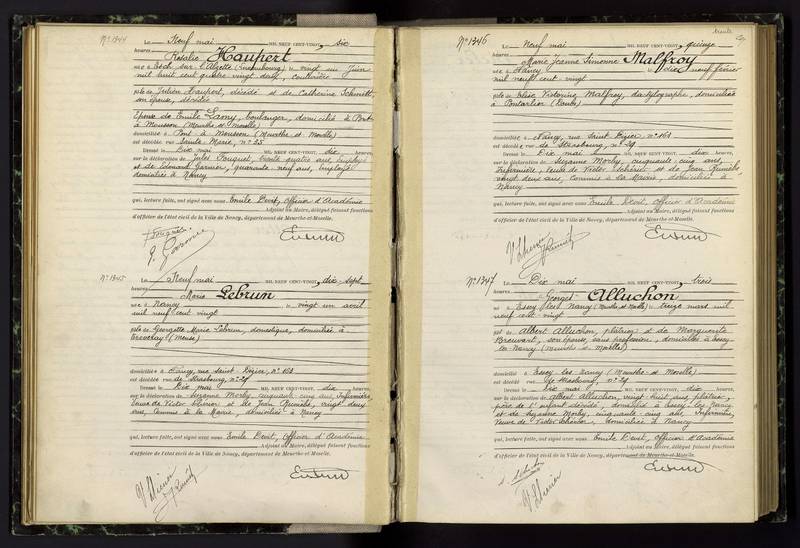 N° 1344 Le Neuf mai MIL NEUF CENT-VINGT, six
heures Rosalie Haupert
née à Esch sur l'Alzette (Luxembourg) le vingt un Juin
mil huit cent quatre vingt
fille de Julien Haupert, décédé et de Catherine Schmitt
son épouse, décédée
Épouse de Emile Lamy, boulanger, domicilié à Pont
à Mousson (Meurthe et Moselle)
domiciliée à Pont à Mousson (Meurthe et Moselle)
est décédée rue Sainte Marie, n° 25
Dressé le Dix mai MIL NEUF CENT-VINGT, dix heures,
sur la déclaration de Jules trente quatre ans, employé
et de Edouard Garnier, quarante neuf ans, employé
domiciliés à Nancy
qui, lecture faite, ont signé avec nous Emile Devit, Officier d'Académie
Adjoint au Maire, délégué faisant fonctions
d'officier de l'état civil de la Ville de Nancy, département de Meurthe-et-Moselle.
N° 1345 Le Neuf mai MIL NEUF CENT-VINGT, dix-sept
heures Marie Lebrun
née à Nancy le vingt un avril
mil neuf cent vingt
fille de Georgette Marie Lebrun, domestique, domiciliée à
Treveray (Meuse)
domiciliée à Nancy, rue Saint Dizier, n° 161
est décédée rue de Strasbourg, n° 29
Dressé le Dix mai MIL NEUF CENT-VINGT, dix heures,
sur la déclaration de Suzanne Morly, cinquante cinq ans, Infirmière
Veuve de Victor et de Jean vingt deux
ans, Commis à la Mairie, domiciliés à Nancy
qui, lecture faite, ont signé avec nous Emile Devit, Officier d'Académie
Adjoint au Maire, délégué faisant fonctions
d'officier de l'état civil de la Ville de Nancy, département de Meurthe-et-Moselle.
N° 1346 Le Neuf mai MIL NEUF CENT-VINGT, quinze
heures Marie Jeanne Simonne Malfroy
née à Nancy le dix neuf février
mil neuf cent vingt
fille de Élise Victorine Malfroy, dactylographe, domiciliée
à Pontarlier (Doubs)
domiciliée à Nancy, rue Saint Dizier n° 161
est décédée rue de Strasbourg, n° 29
Dressé le Dix mai MIL NEUF CENT-VINGT, dix heures,
sur la déclaration de Suzanne Morly, cinquante-cinq ans,
Infirmière, Veuve de Victor et de Jean
vingt deux ans, Commis à la Mairie, domiciliés à
Nancy
qui, lecture faite, ont signé avec nous Emile Devit, Officier d'Académie
Adjoint au Maire, délégué faisant fonctions
d'officier de l'état civil de la Ville de Nancy, département de Meurthe-et-Moselle.
N° 1347 Le Dix mai MIL NEUF CENT-VINGT, trois
heures Georges Alluchon
né à Essey les Nancy (Meurthe et Moselle) le treize mars mil
neuf cent vingt
fils de Albert Alluchon, plâtrier et de Marguerite
son épouse, sans profession, domiciliés à Essey
les Nancy (Meurthe et Moselle)
domicilié à Essey-les Nancy (Meurthe et Moselle)
est décédé rue de Strasbourg, n° 29
Dressé le Dix mai MIL NEUF CENT-VINGT, dix heures,
sur la déclaration de Albert Alluchon, vingt huit ans, plâtrier,
père de l'enfant décédé, domicilié à Essey les Nancy
et de Suzanne Morly cinquante-cinq ans Infirmière,
Veuve de Victor domiciliée à Nancy
qui, lecture faite, ont signé avec nous Emile Devit, Officier d'Académie
Adjoint au Maire, délégué faisant fonctions
d'officier de l'état civil de la Ville de Nancy, département de Meurthe-et-Moselle.